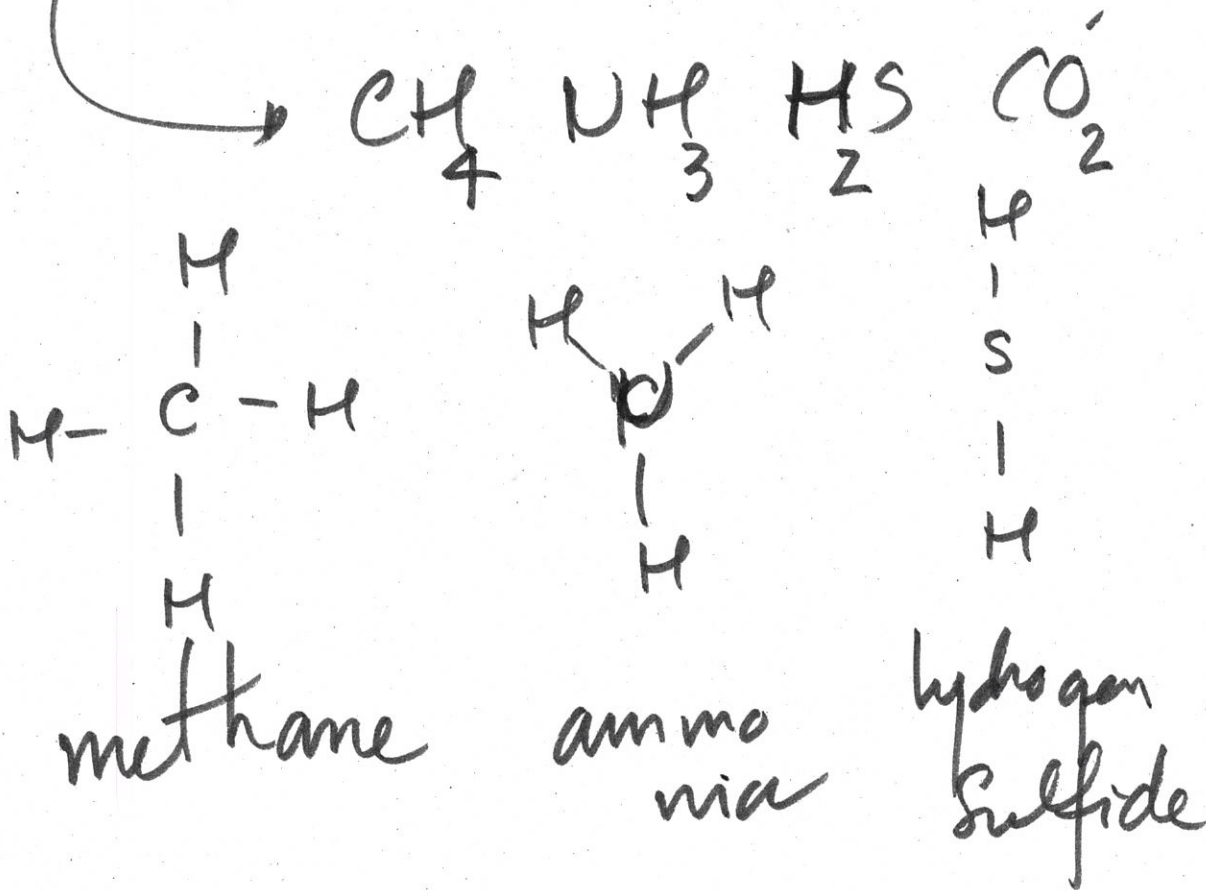 CH4 NH3 H2S CO2
H
H - C - H
H
H H
N
H
H
S
H
methane
ammo
nia
hydrogen
Sulfide